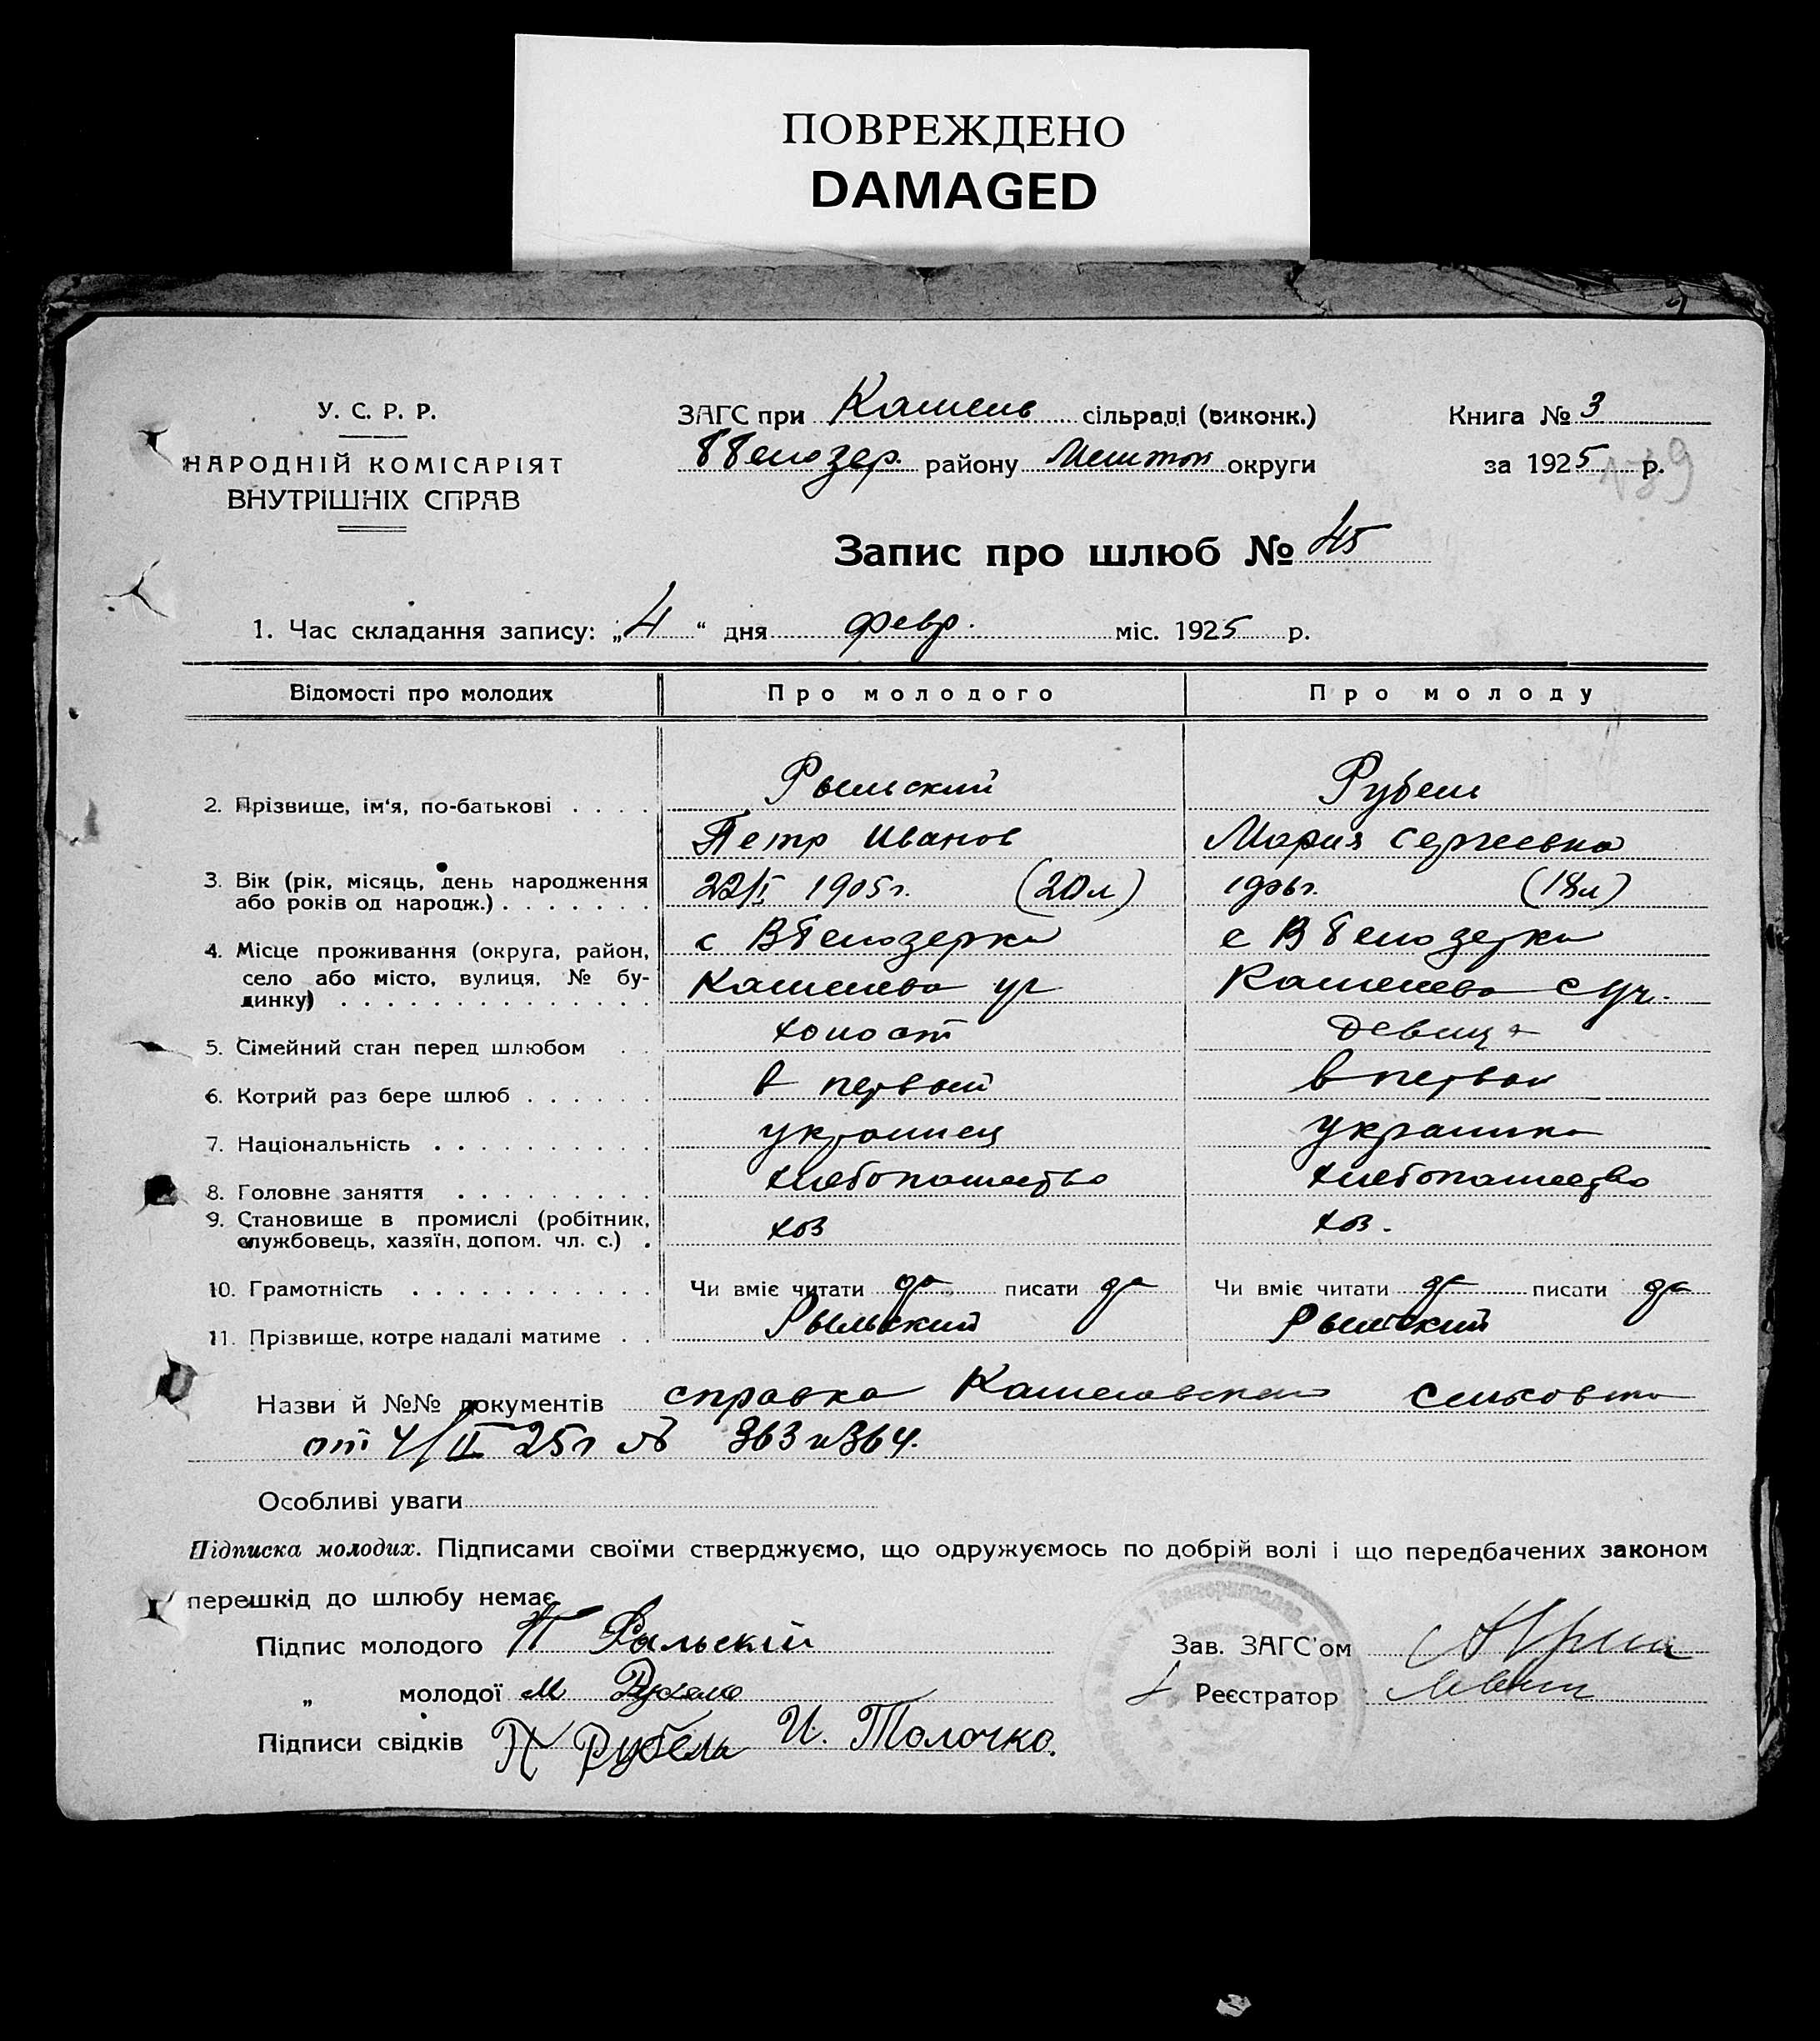 ПОВРЕЖДЕНО
DAMAGED
У. С. Р. Р.
НАРОДНІЙ КОМІСАРІЯТ
ВНУТРІШНІХ СПРАВ
ЗАГС при Камень сільраді (виконк.)
ВБелозер. району Мелитоп округи
Книга № 3
за 1925 р.
139
Запис про шлюб № 45
1. Час складання запису: „4“ дня февр. міс. 1925 р.
Відомості про молодих Про молодого Про молоду
2. Прізвище, ім'я, по-батькові . . . . Рыльский Рубель
Петр Иванов Мария Сергеевна
3. Вік (рік, місяць, день народження
або років од народж.) . . . . . . . 22/I 1905г. (20л) 1906г. (18л)
4. Місце проживання (округа, район,
село або місто, вулиця, № бу-
динку) . . . . . . . . . . . . . .
с ВБелозерка с ВБелозерка
Каменева уч Каменева с уч.
5. Сімейний стан перед шлюбом . . холост девица
6. Котрий раз бере шлюб . . . . . . в первый в первый
7. Національність . . . . . . . . . . украинец украинка
8. Головне заняття . . . . . . . . . хлебопашество хлебопашество
9. Становище в промислі (робітник,
службовець, хазяїн, допом. чл. с.) . хоз хоз.
10. Грамотність . . . . . . . . . . . Чи вміє читати да писати да Чи вміє читати да писати да
11. Прізвище, котре надалі матиме . . Рыльский Рыльский
Назви й №№ документів справка Каменовского
от 4/II 25г № 363 и 364.
Особливі уваги
Підписка молодих. Підписами своїми стверджуємо, що одружуємось по добрій волі і що передбачених законом
перешкід до шлюбу немає.
Підпис молодого П Рыльскій
„ молодої М Рубель
Підписи свідків П Рубель И. Толочко.
Зав. ЗАГС'ом
Реєстратор